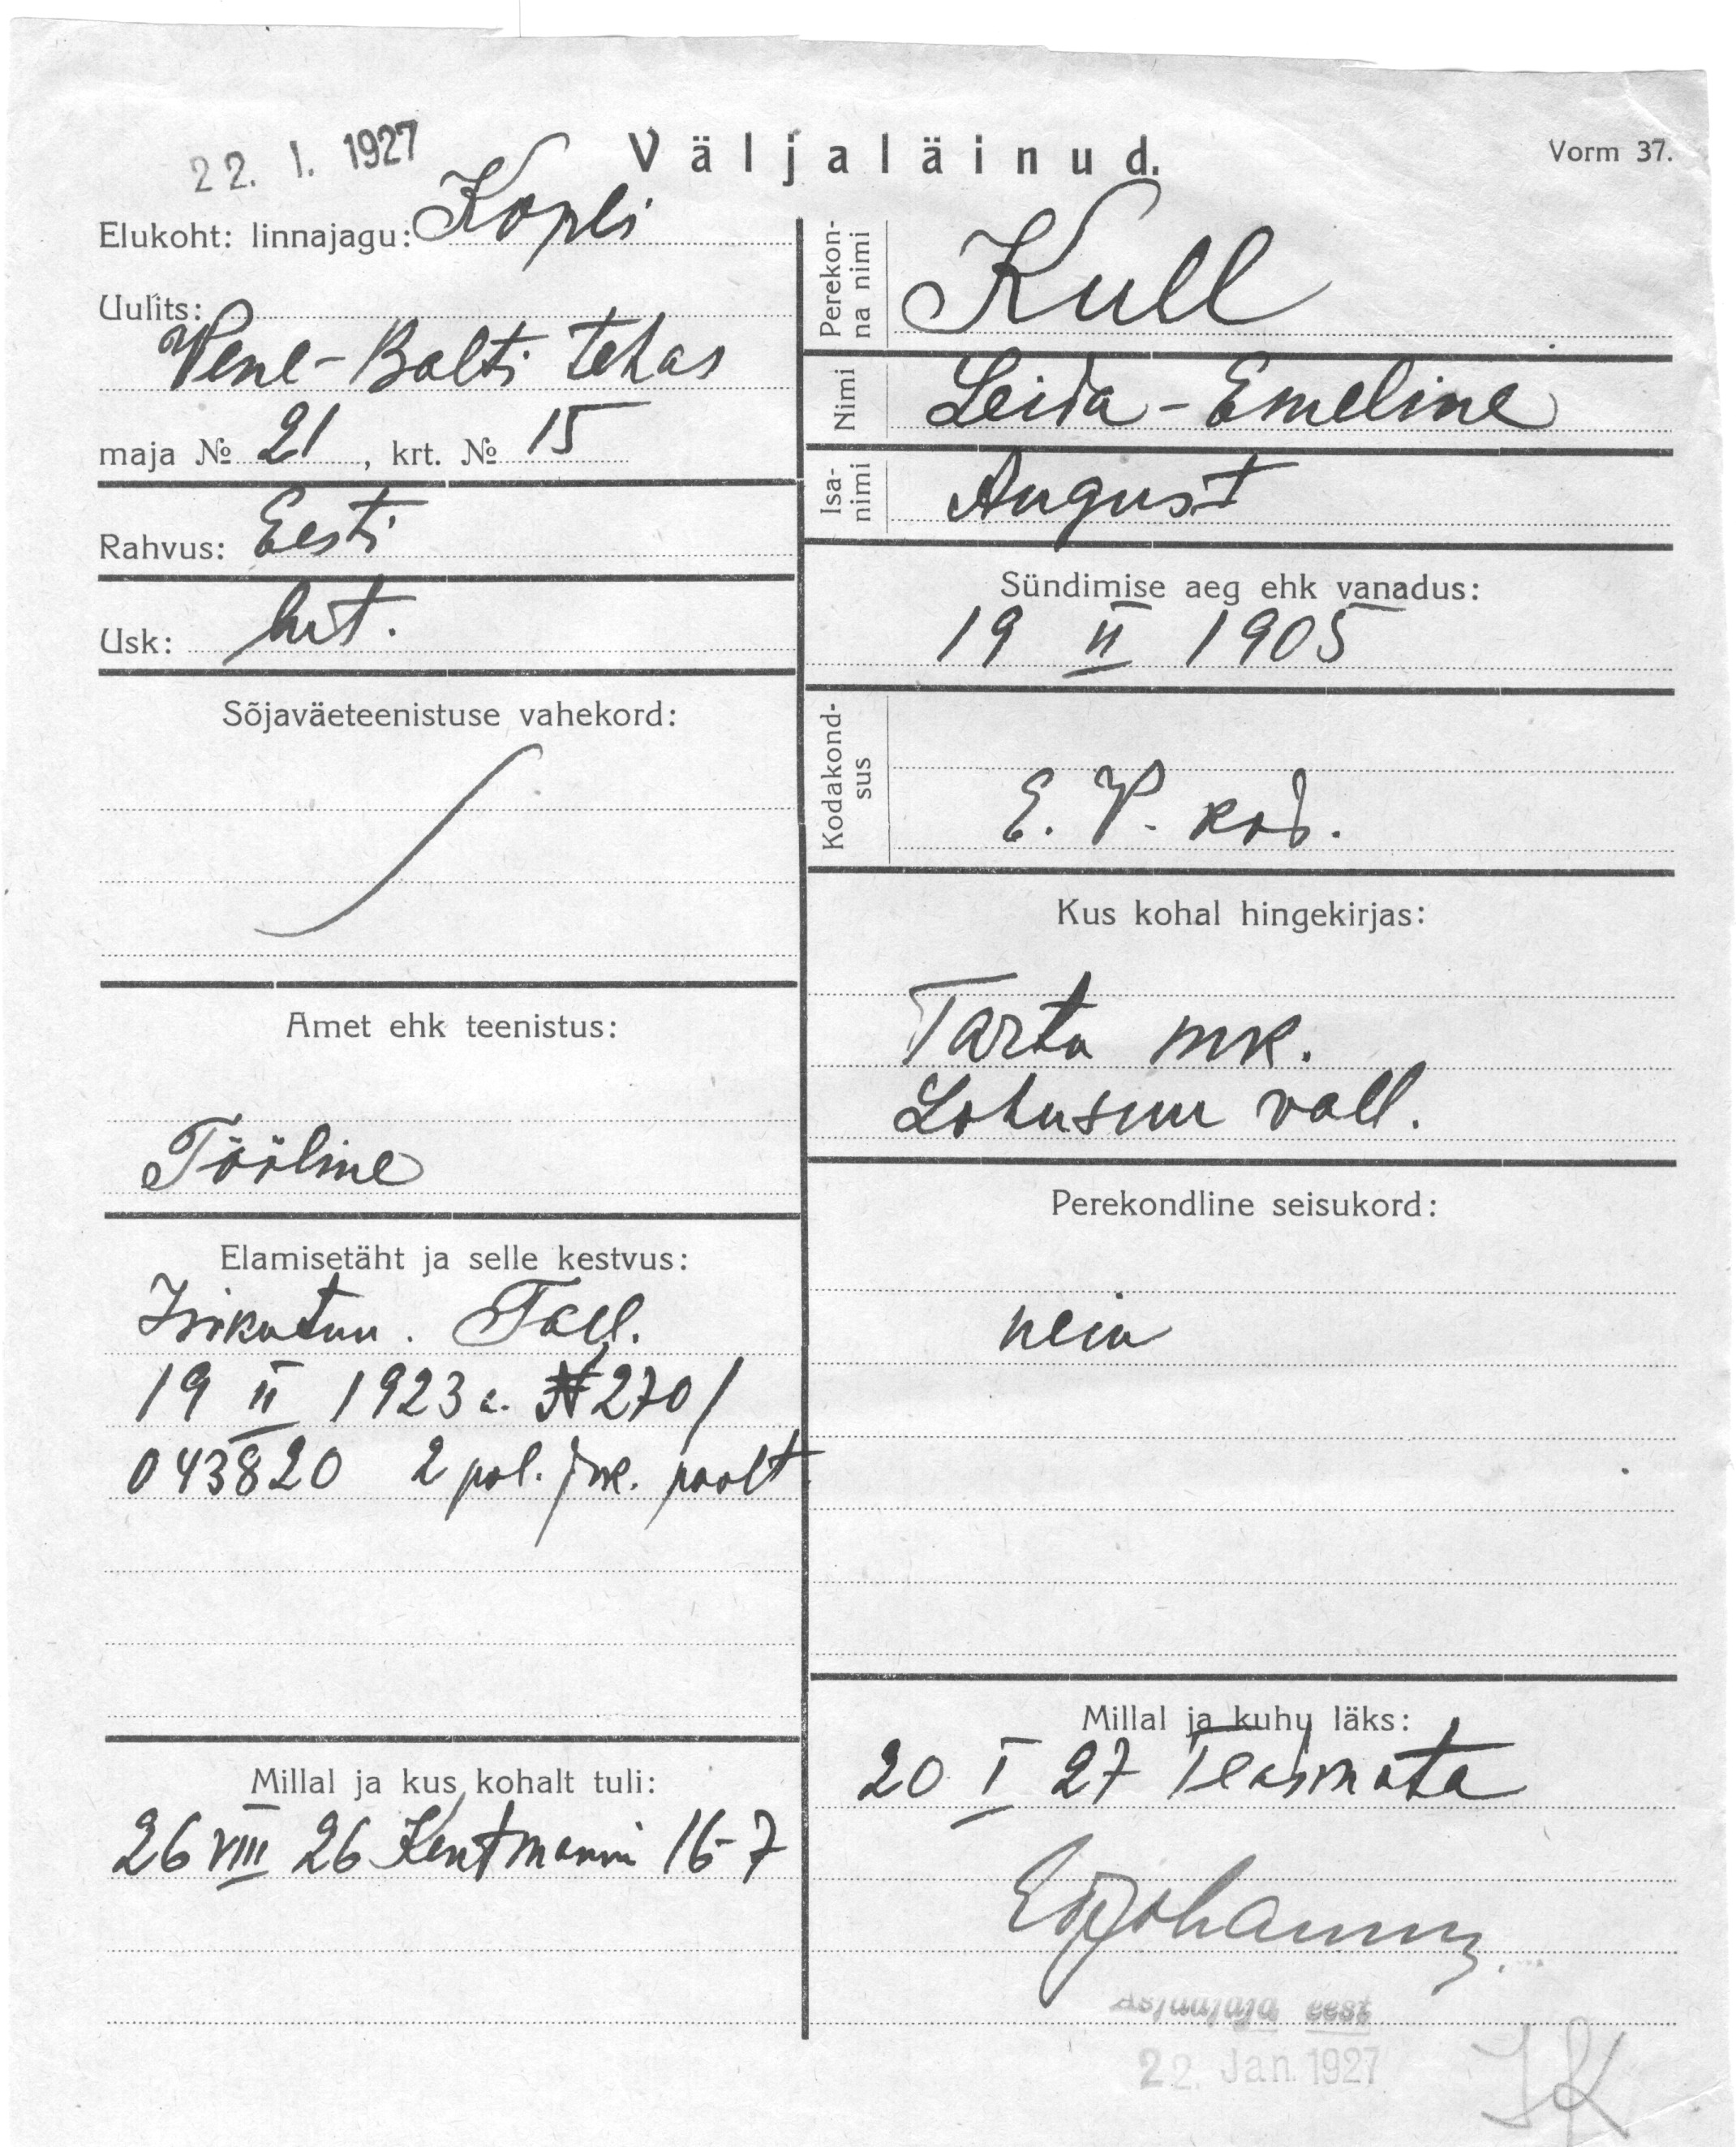 22. 1. 1927
Väljaläinud.
Vorm 37.
Elukoht: linnajagu: Kopli
Uulits:
Vene-Balti tehas
maja № 21, krt. № 15
Rahvus: Eesti
Usk: lut.
Sõjaväeteenistuse vahekord:
Amet ehk teenistus:
Tööline
Elamisetäht ja selle kestvus:
Isikutun. Tall.
19 II 1923 a. № 2701
043820 2 pol. jsk. poolt
Millal ja kus kohalt tuli:
26 VIII 26 Kentmanni 16-7
Perekon-
na nimi
Kull
Nimi
Leida-Emeline
Isa-
nimi
August
Sündimise aeg ehk vanadus:
19 II 1905
Kodakond-
sus
E. V. kod.
Kus kohal hingekirjas:
Tartu mk.
Lohusuu vall.
Perekondline seisukord:
neiu
Millal ja kuhu läks:
20 I 27 Teadmata
Asjaajaja eest
22. Jan. 1927